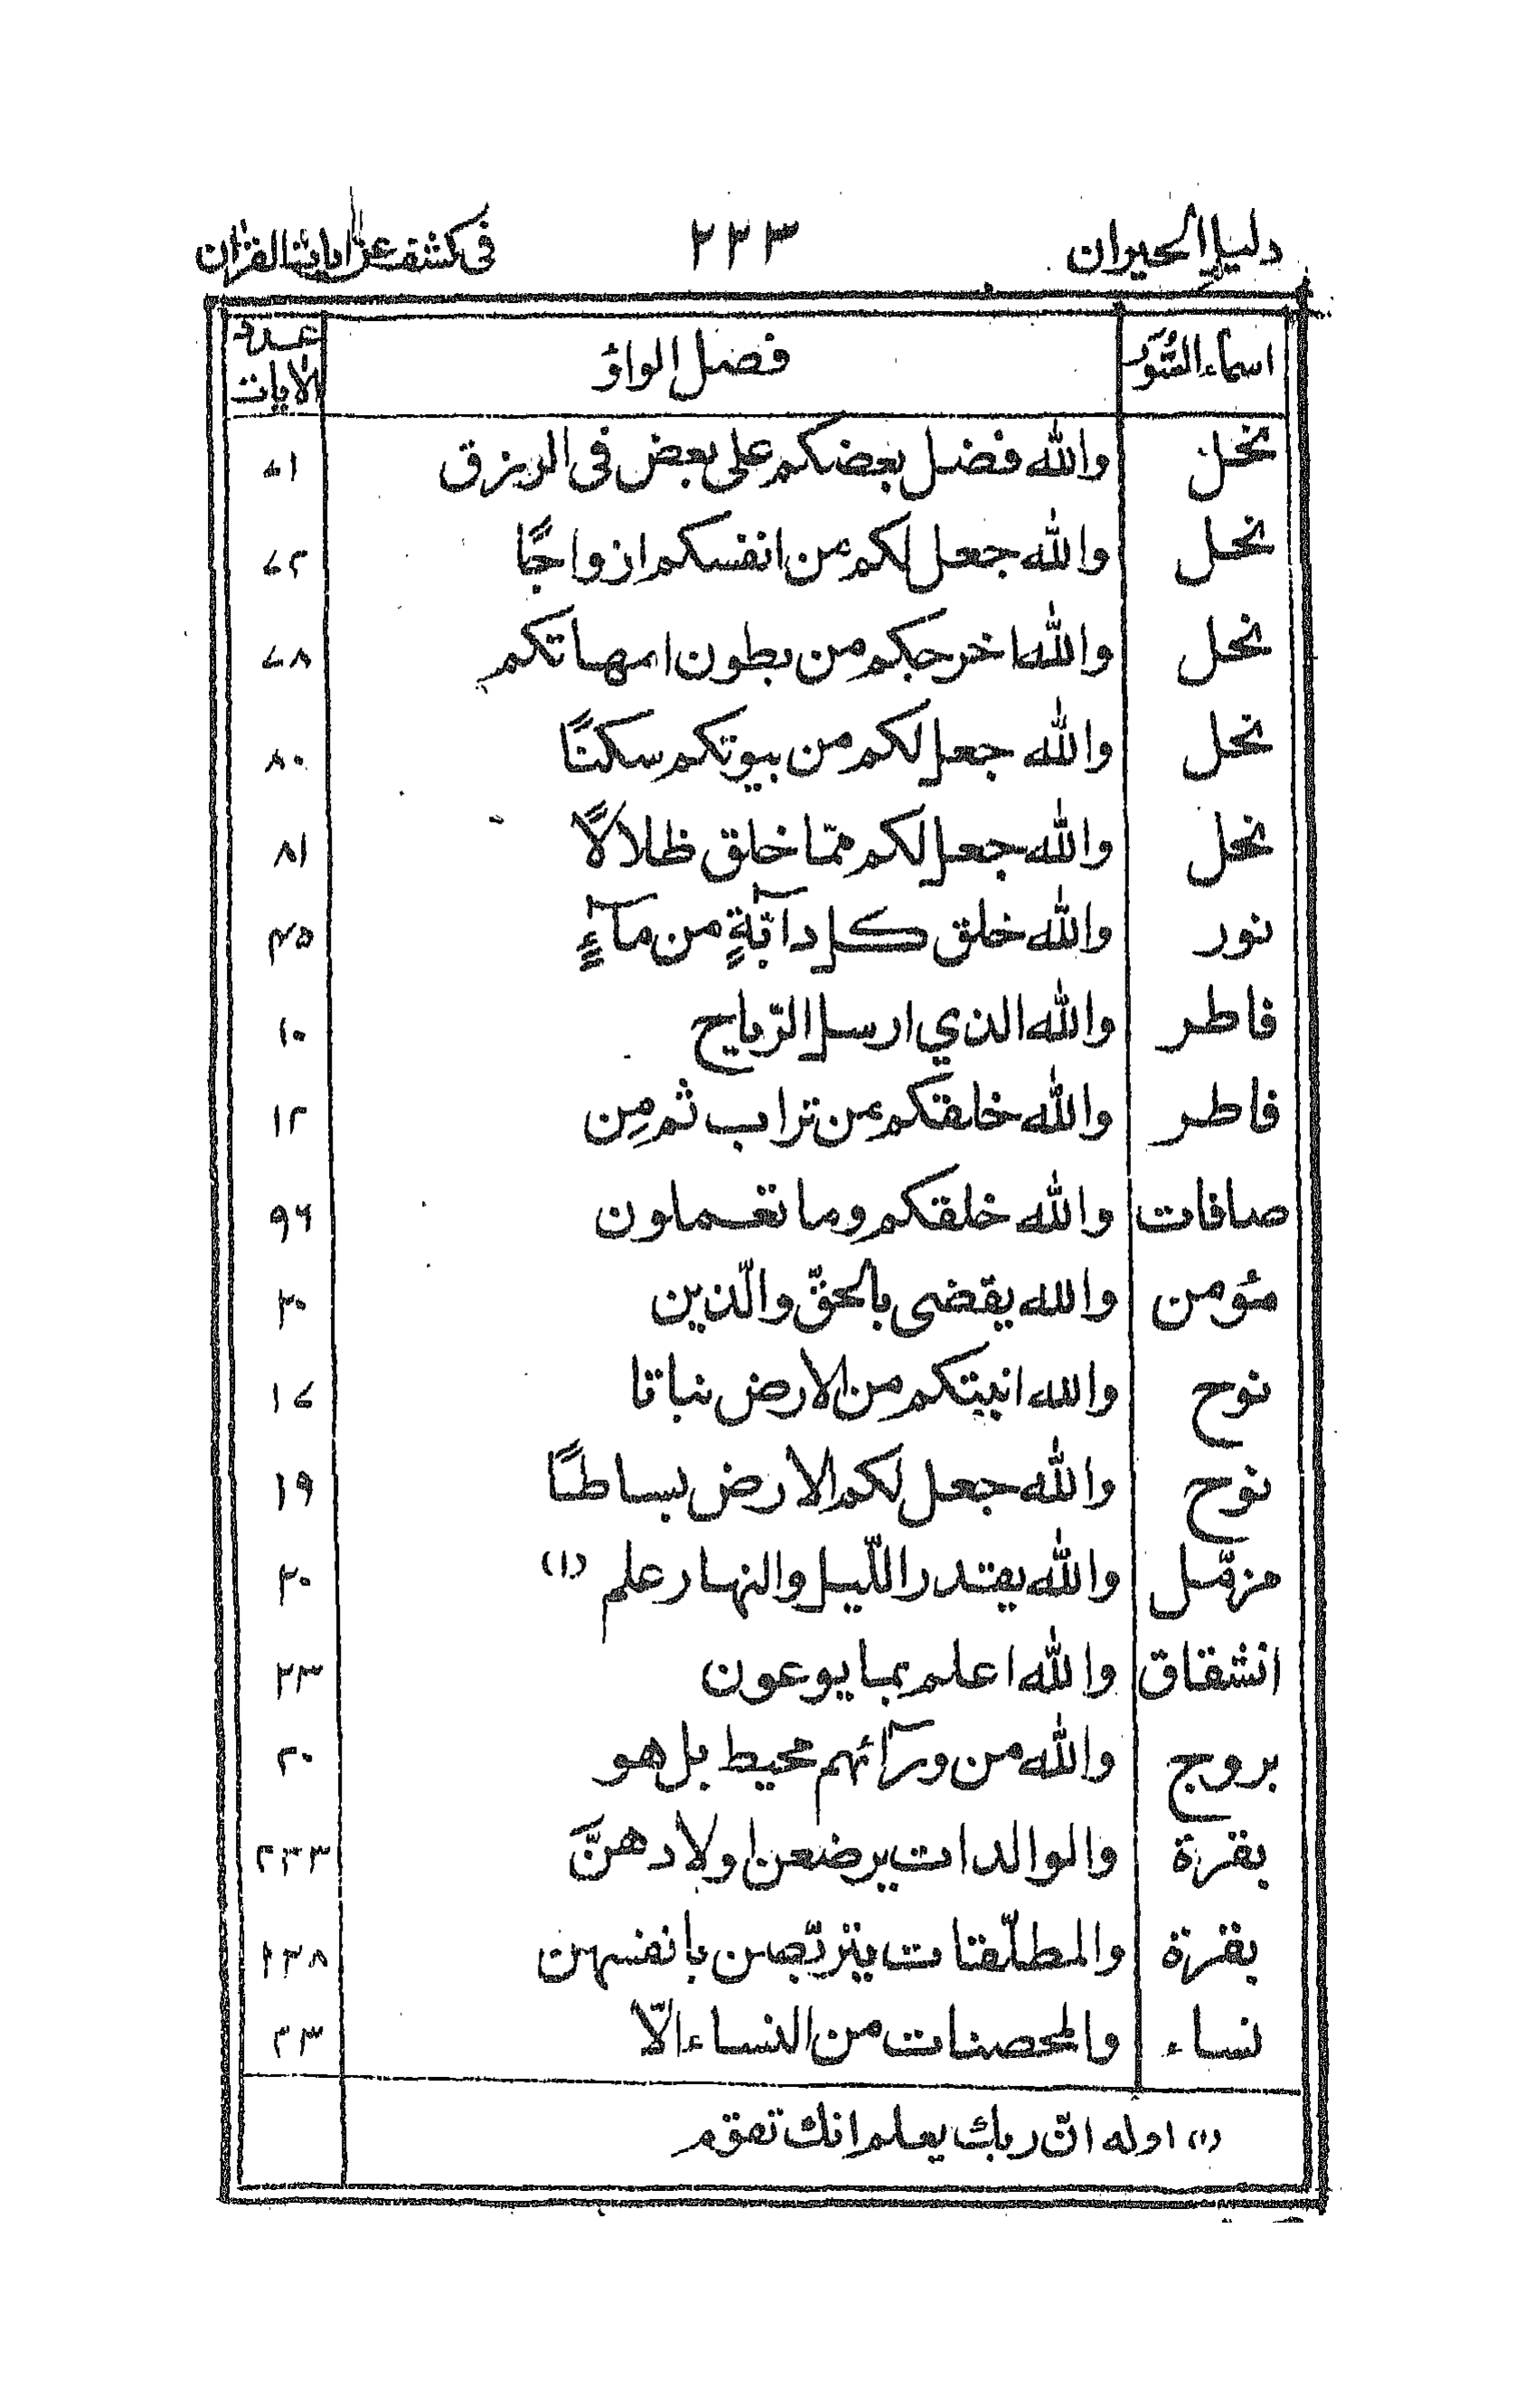 دليل الحيران ٢٣٣ في كشف عن ايات القران
اسماء السُّوَر فصل الواؤ عدد الايات
نحل والله فضل بعضكم على بعض فى الرزق ٧١
نحل والله جعل لكم من انفسكم ازواجًا ٧٢
نحل والله اخرجكم من بطون امهاتكم ٧٨
نحل والله جعل لكم من بيوتكم سكنًا ٨٠
نحل والله جعل لكم ممّا خلق ظلالًا ٨١
نور والله خلق كل دآبّةٍ من مآءٍ ٤٥
فاطر والله الذي ارسل الرّياح ١٠
فاطر والله خلقكم من تراب ثم مِن ١٢
صافات والله خلقكم وما تعملون ٩٦
مؤمن والله يقضى بالحقّ والّذين ٢٠
نوح والله انبتكم من الارض نباتا ١٧
نوح والله جعل لكم الارض بساطًا ١٩
مزمّل والله يقدر اللّيل والنهار علم (١) ٢٠
انشقاق والله اعلم بما يوعون ٢٣
بروج والله من ورآئهم محيط بل هو ٢٠
بقرة والوالدات يرضعن اولادهنَّ ٢٣٣
بقرة والمطلّقات يتربّصن بانفسهن ٢٣٨
نساء والمحصنات من النساء الّا ٢٣
(١) اوله انّ ربك يعلم انك تقوم